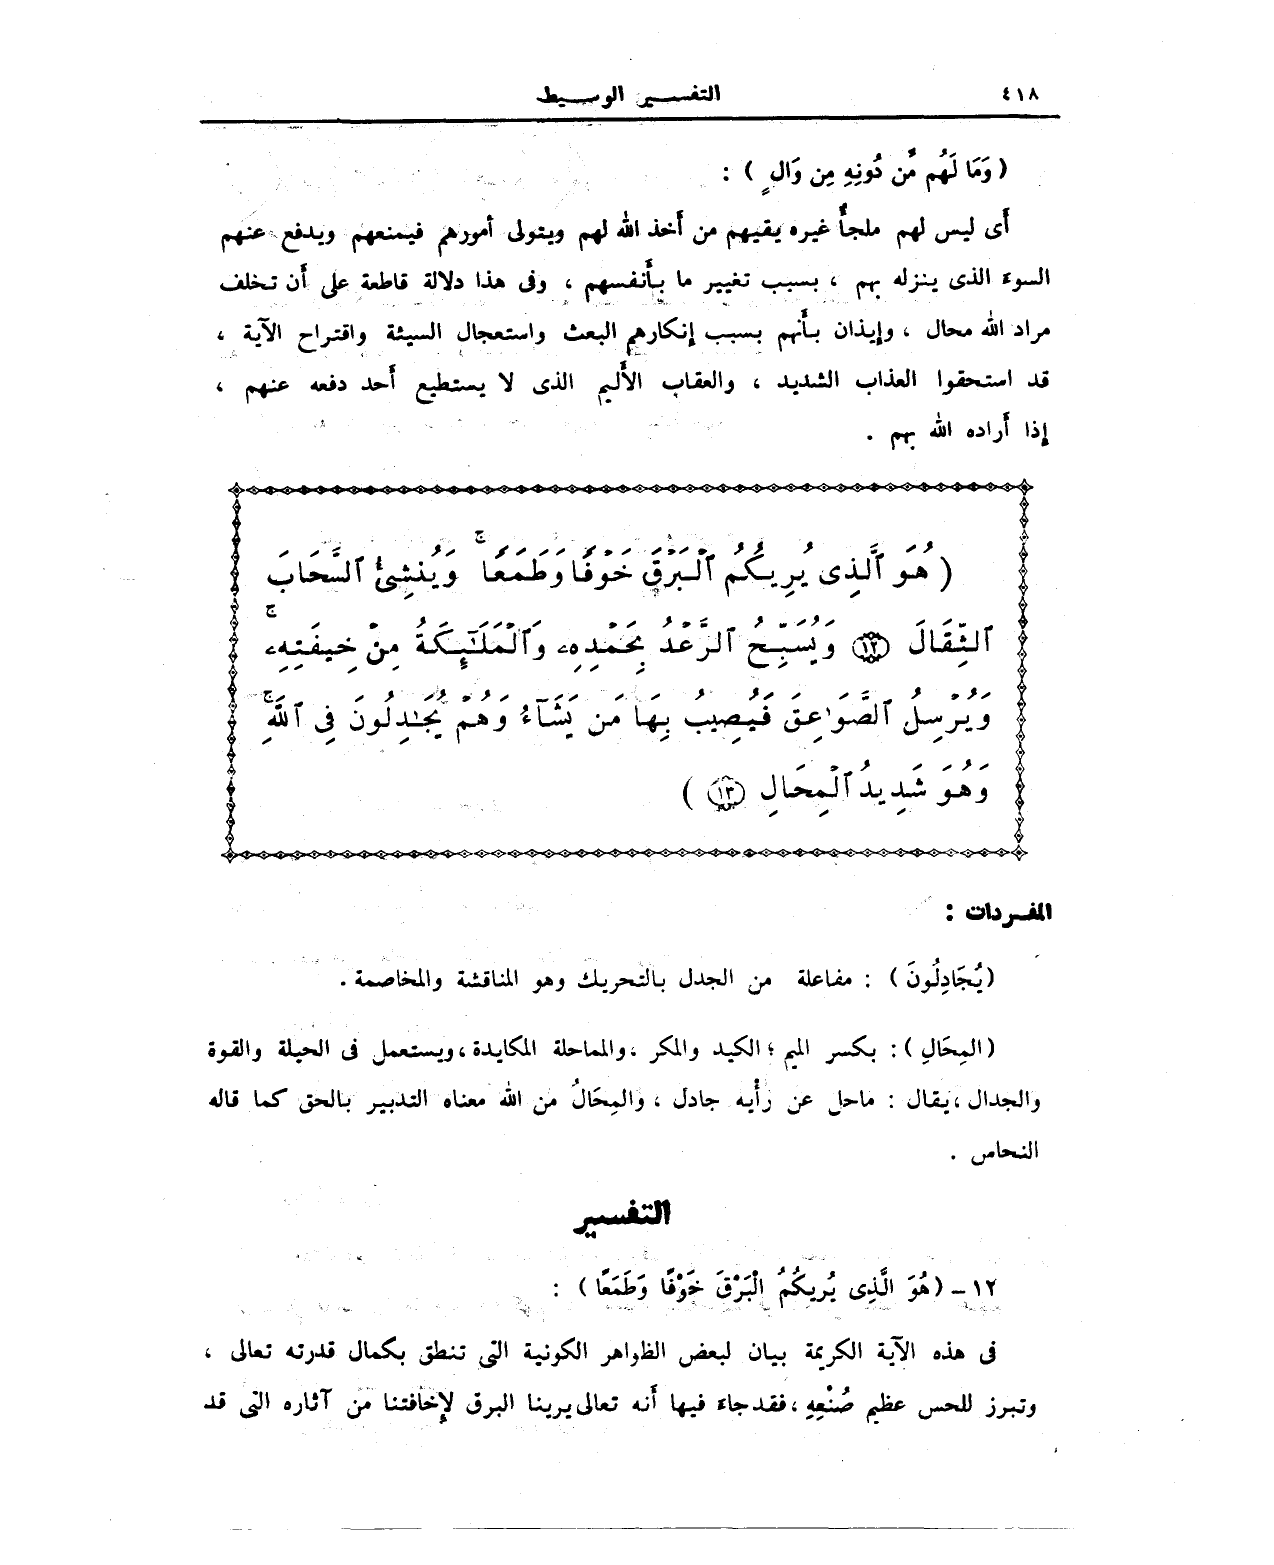 ٤١٨ التفسير الوسيط
( وَمَا لَهُم مِّن دُونِهِ مِن وَالٍ ) :
أى ليس لهم ملجأٌ غيره يقيهم من أخذ الله لهم ويتولى أمورهم فيمنعهم ويدفع عنهم
السوءَ الذى ينزله بهم ، بسبب تغيير ما بأَنفسهم ، وفى هذا دلالة قاطعة على أَن تخلف
مراد الله محال ، وإيذان بأَنهم بسبب إنكارهم البعث واستعجال السيئة واقتراح الآية ،
قد استحقوا العذاب الشديد ، والعقاب الأَليم الذى لا يستطيع أَحد دفعه عنهم ،
إذا أَراده الله بهم .
( هُوَ ٱلَّذِى يُرِيكُمُ ٱلْبَرْقَ خَوْفًا وَطَمَعًا ۚ وَيُنشِئُ ٱلسَّحَابَ
ٱلثِّقَالَ ١٢ وَيُسَبِّحُ ٱلرَّعْدُ بِحَمْدِهِۦ وَٱلْمَلَـٰٓئِكَةُ مِنْ خِيفَتِهِۦ ۚ
وَيُرْسِلُ ٱلصَّوَٰعِقَ فَيُصِيبُ بِهَا مَن يَشَآءُ وَهُمْ يُجَـٰدِلُونَ فِى ٱللَّهِ ۚ
وَهُوَ شَدِيدُ ٱلْمِحَالِ ١٣ )
المفردات :
( يُجَادِلُونَ ) : مفاعلة من الجدل بالتحريك وهو المناقشة والمخاصمة .
( المِحَالِ ) : بكسر الميم ؛ الكيد والمكر ، والمماحلة المكايدة ، ويستعمل فى الحيلة والقوة
والجدال ، يقال : ماحل عن رَأْيه جادل ، والمِحَالُ من الله معناه التدبير بالحق كما قاله
النحاس .
التفسير
١٢ - ( هُوَ الَّذِى يُرِيكُمُ الْبَرْقَ خَوْفًا وَطَمَعًا ) :
فى هذه الآية الكريمة بيان لبعض الظواهر الكونية التى تنطق بكمال قدرته تعالى ،
وتبرز للحس عظيم صُنْعِهِ ، فقد جاءَ فيها أَنه تعالى يرينا البرق لإخافتنا من آثاره التى قد